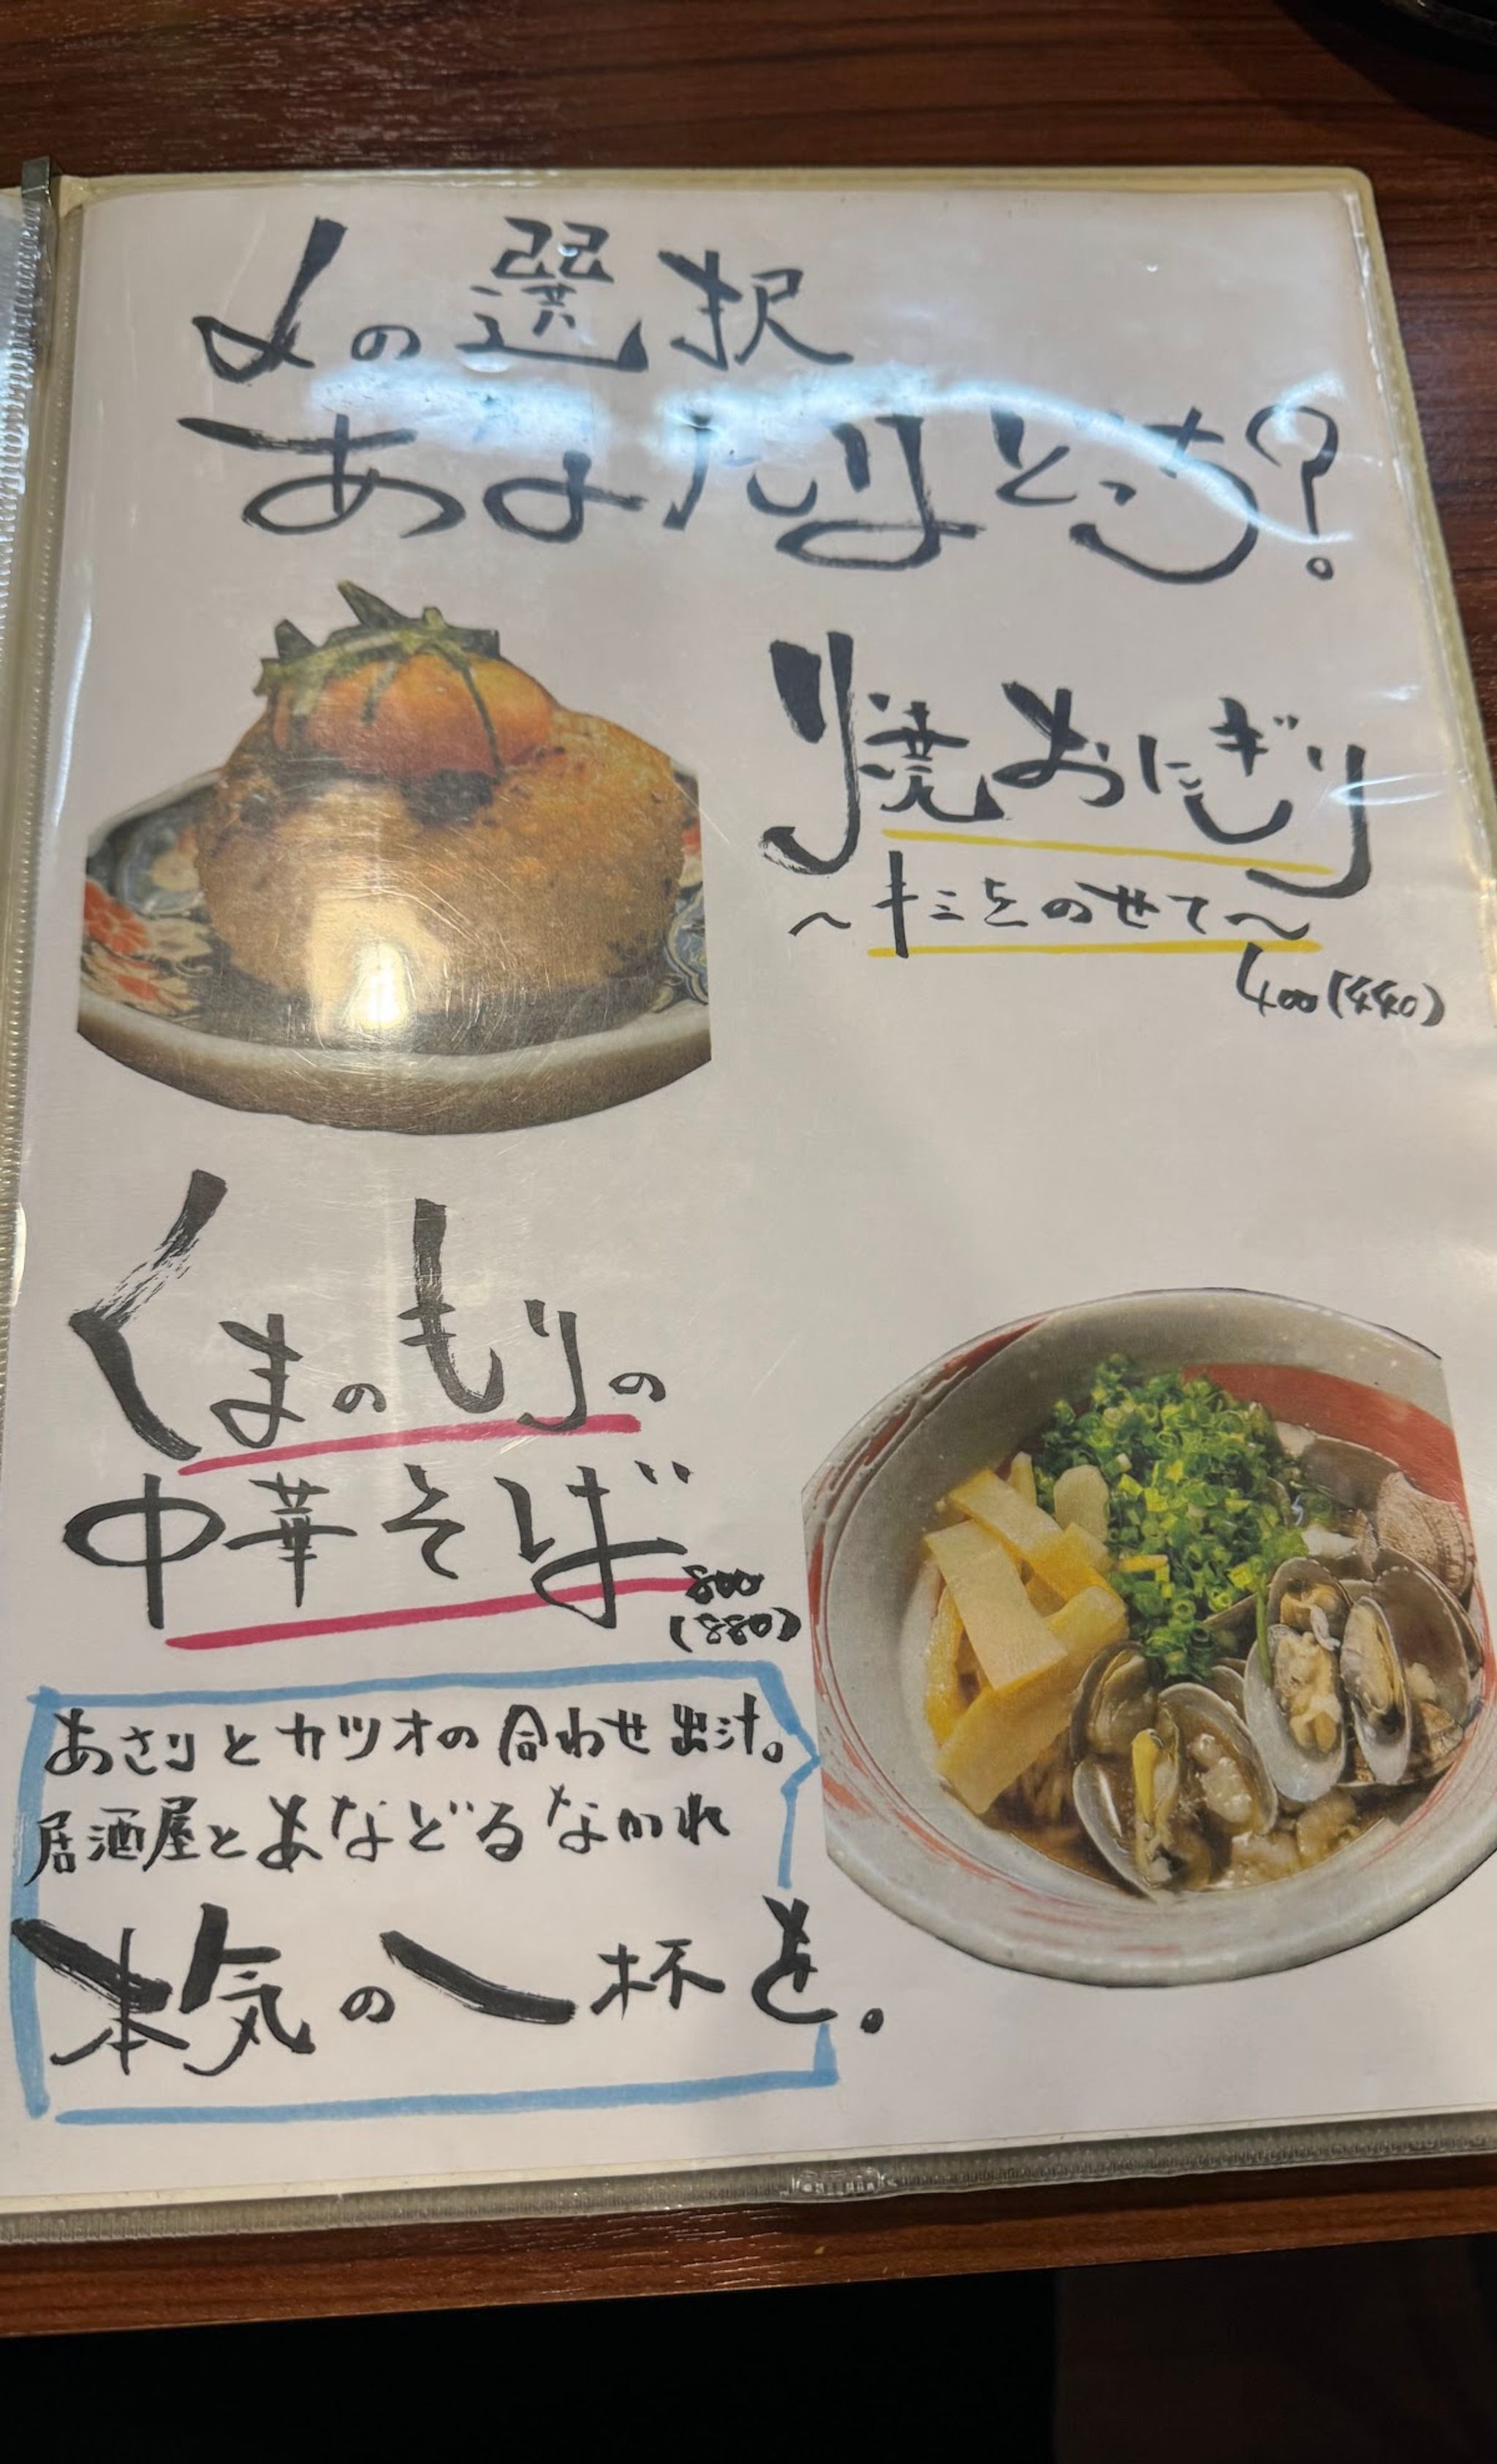 〆の選択
あなたはどっち?
焼おにぎり
~キミをのせて~
400(440)
くまのもりの
中華そば
800
(880)
あさりとカツオの合わせ出汁。
居酒屋とあなどるなかれ
本気の一杯を。